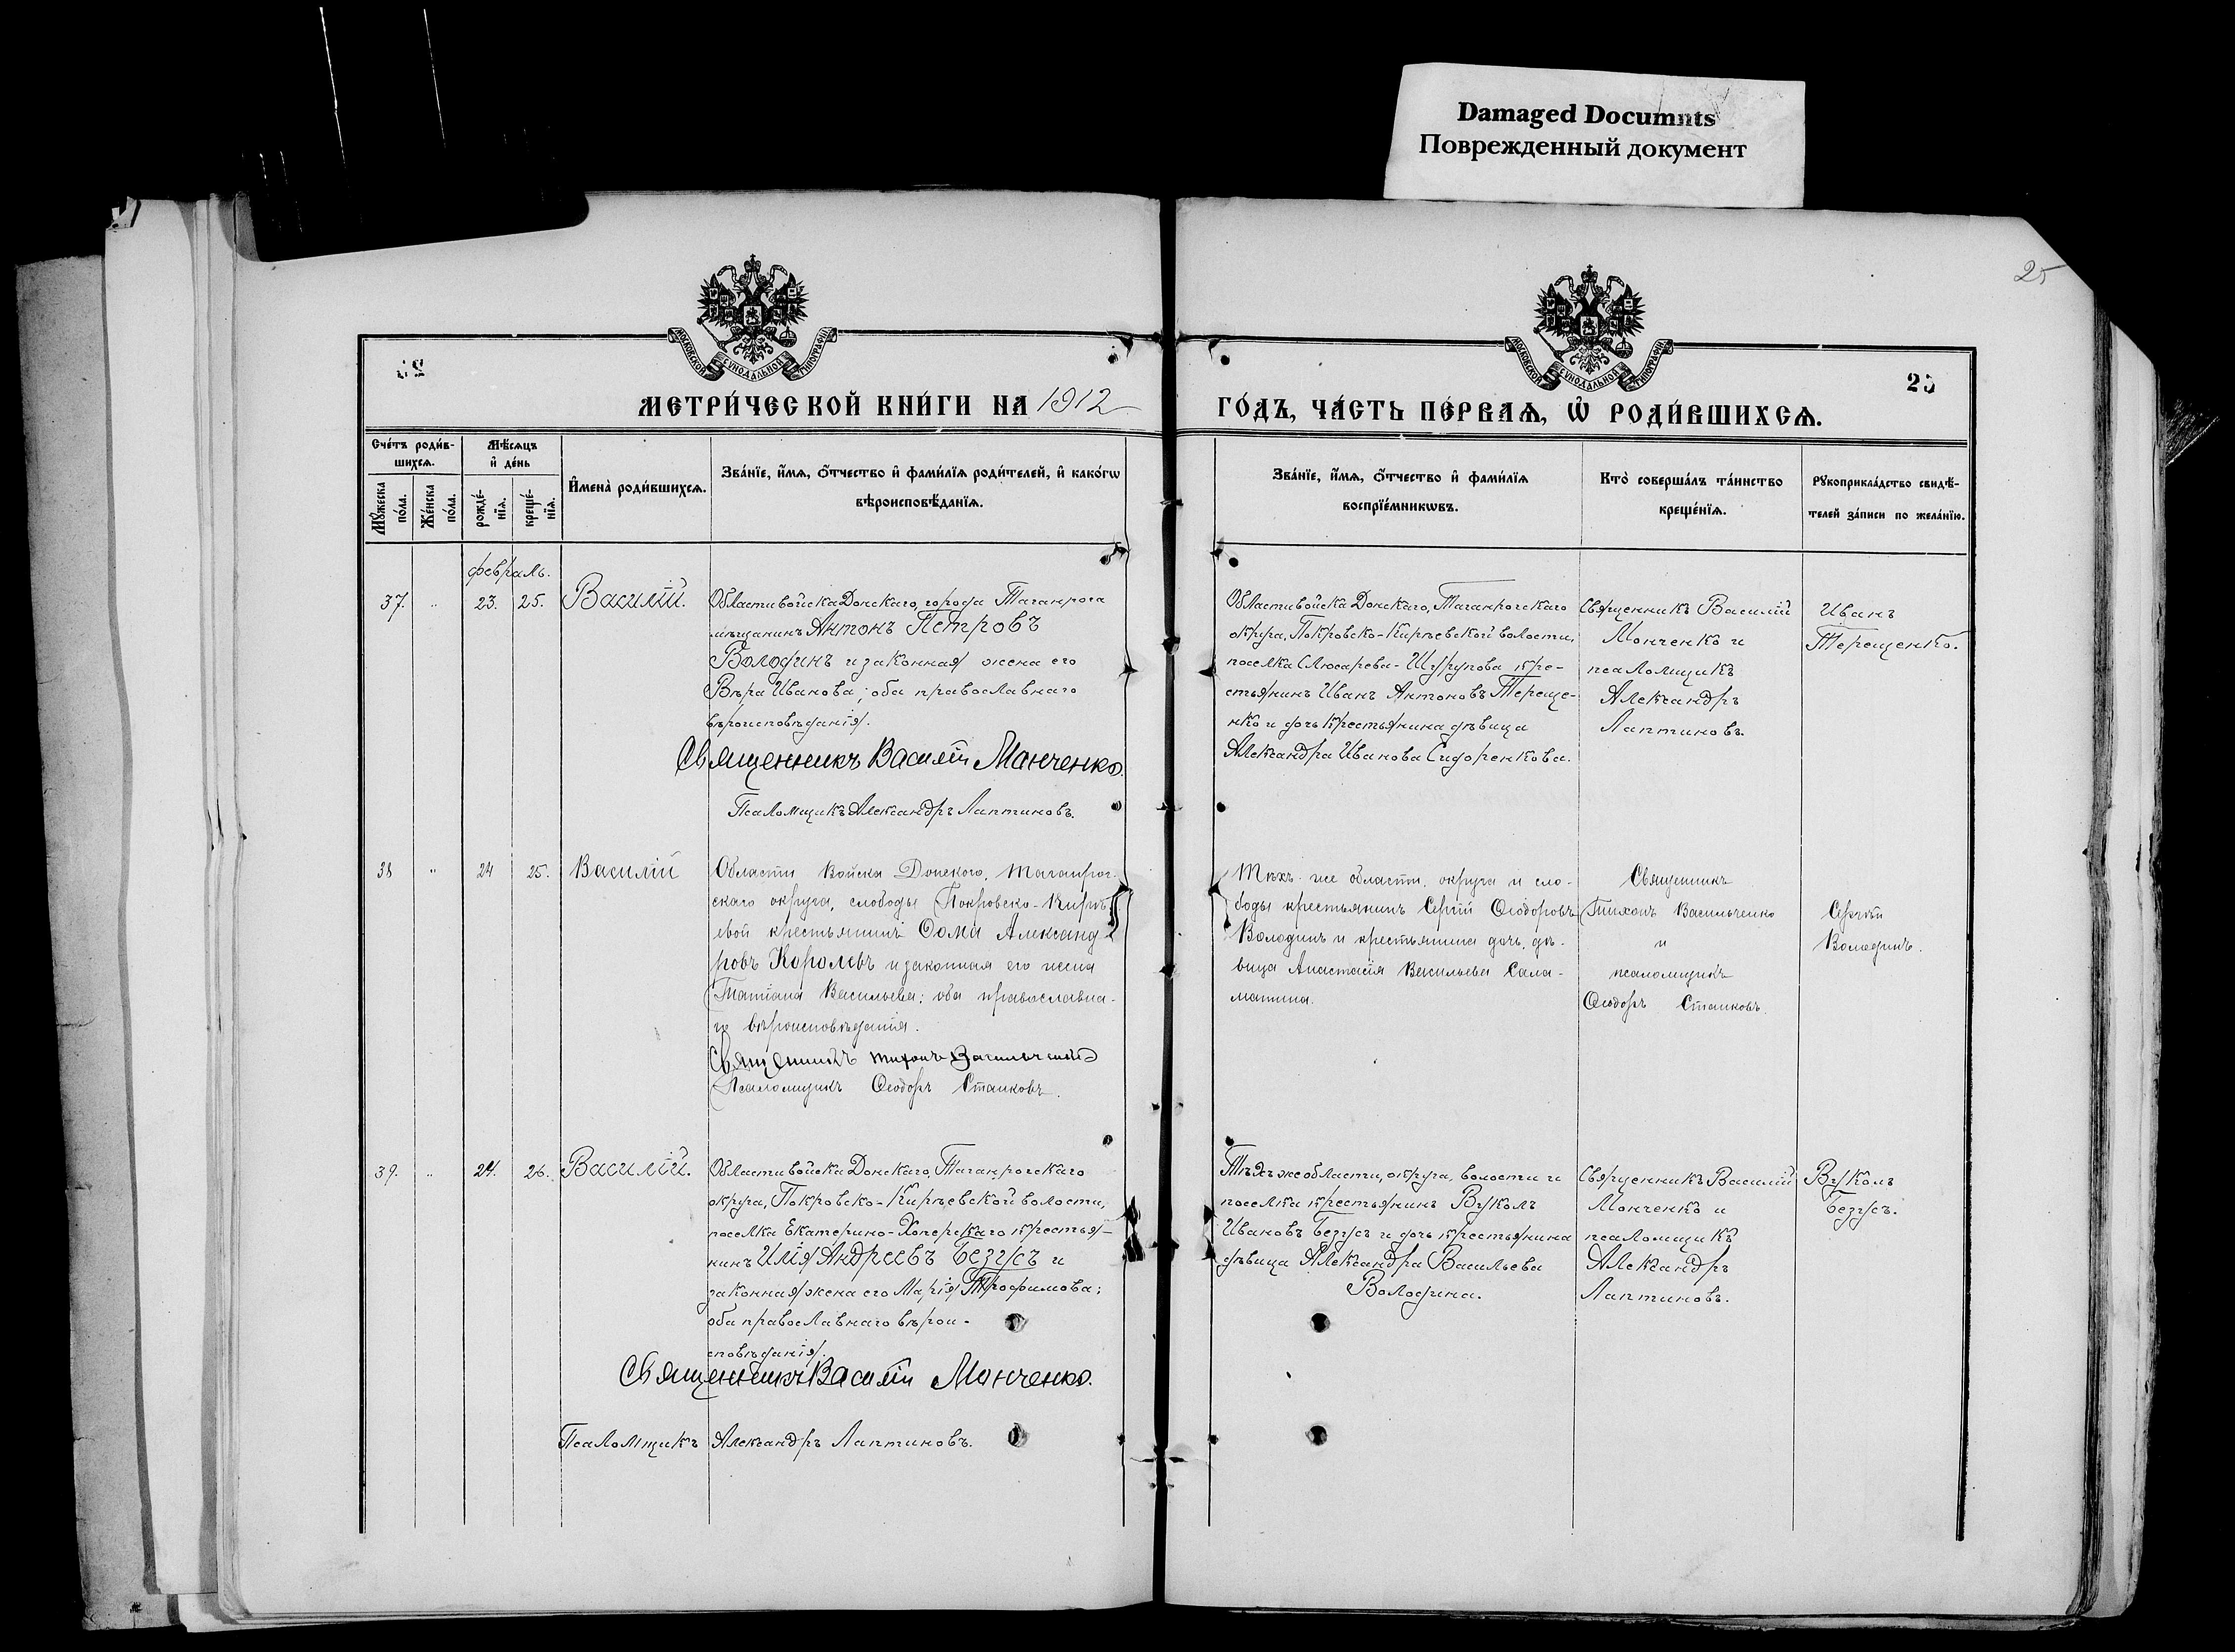 Damaged Documnts
Поврежденный документ
25
МОСКОВСКОЙ СУНОДАЛЬНОЙ ТИПОГРАФІИ
МОСКОВСКОЙ СУНОДАЛЬНОЙ ТИПОГРАФІИ
МЕТРИ́ЧЕСКОЙ КНИ́ГИ НА 1912
ГО́ДЪ, ЧА́СТЬ ПЕ́РВАѦ, Ѡ҆ РОДИ́ВШИХСѦ.
Сче́тъ роди́в-
шихсѧ.
Мѣ́сѧцъ
и҆ де́нь
Мꙋ́жеска
по́ла.
Же́нска
по́ла.
рожде́-
нїѧ.
креще́-
нїѧ.
И҆мена̀ роди́вшихсѧ.
Зва́нїе, и҆́мѧ, ѻ҆́тчество и҆ фами́лїѧ роди́телей, и҆ како́гѡ
вѣроисповѣ́данїѧ.
Зва́нїе, и҆́мѧ, ѻ҆́тчество и҆ фами́лїѧ
воспрїе́мникѡвъ.
Кто̀ соверша́лъ та́инство
креще́нїѧ.
Рꙋкоприкла́дство свидѣ́-
телей за́писи по жела́нїю.
февраль.
37. " 23. 25. Василій.
Области войска Донскаго, города Таганрога
мѣщанинъ Антонъ Петровъ
Володинъ и законная жена его
Вѣра Иванова; оба православнаго
вѣроисповѣданія.
Священникъ Василій Манченко.
Псаломщикъ Александръ Лаптиновъ.
Области войска Донскаго, Таганрогскаго
округа, Покровско-Кирѣевской волости,
поселка Слюсарева-Шурупова кре-
стьянинъ Иванъ Антоновъ Тереще-
нко и дочь крестьянина дѣвица
Александра Иванова Сидоренкова.
Священникъ Василій
Монченко и
псаломщикъ
Александръ
Лаптиновъ.
Иванъ
Терещенко.
38 " 24 25. Василій
Области Войска Донского, Таганрог-
скаго округа, слободы Покровско-Кирѣ-
евой крестьянинъ Ѳома Александ-
ровъ Королевъ и законная его жена
Татіана Васильева; оба православна-
го вѣроисповѣданія.
Священникъ Тихонъ Васильченко
Псаломщикъ Ѳеодоръ Станковъ.
Тѣхъ же области, округа и сло-
боды крестьянинъ Сергій Ѳеодоровъ
Володинъ и крестьянина дочь, дѣ-
вица Анастасія Васильева Сала-
матина.
Священникъ
Тихонъ Васильченко
и
псаломщикъ
Ѳеодоръ Станковъ.
Сергѣй
Володинъ.
39. " 24. 26. Василій.
Области войска Донскаго, Таганрогскаго
округа, Покровско-Кирѣевской волости,
поселка Екатерино-Хоперскаго крестья-
нинъ Илія Андреевъ Безусъ и
законная жена его Марія Трофимова;
оба православнаго вѣрои-
сповѣданія.
Священникъ Василій Манченко.
Псаломщикъ Александръ Лаптиновъ.
Тѣхъ же области, округа, волости и
поселка крестьянинъ Вуколъ
Ивановъ Безусъ и дочь крестьянина
дѣвица Александра Васильева
Володина.
Священникъ Василій
Монченко и
псаломщикъ
Александръ
Лаптиновъ.
Вуколъ
Безусъ.